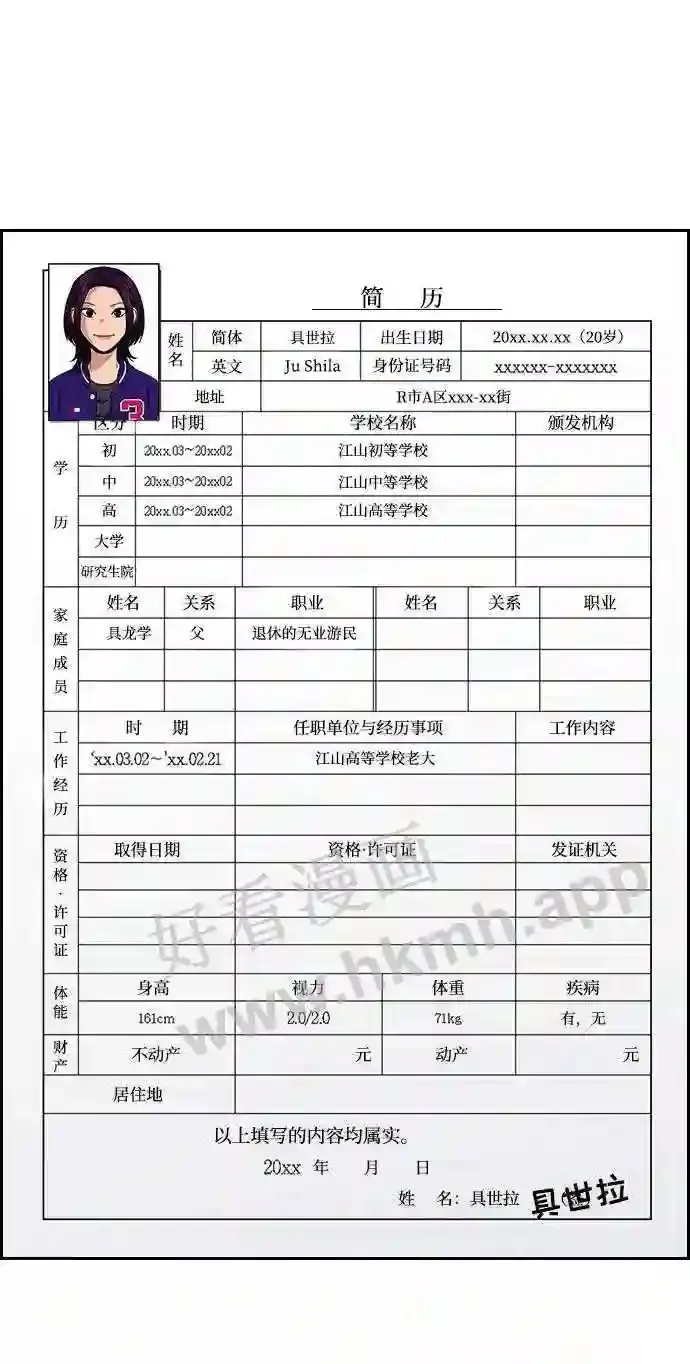 简 历
姓名 简体 具世拉 出生日期 20xx.xx.xx（20岁）
英文 Ju Shila 身份证号码 xxxxxx-xxxxxxx
地址 R市A区xxx-xx街
学历 区分 时期 学校名称 颁发机构
初 20xx.03~20xx02 江山初等学校
中 20xx.03~20xx02 江山中等学校
高 20xx.03~20xx02 江山高等学校
大学
研究生院
家庭成员 姓名 关系 职业 姓名 关系 职业
具龙学 父 退休的无业游民
工作经历 时 期 任职单位与经历事项 工作内容
‘xx.03.02~’xx.02.21 江山高等学校老大
资格·许可证 取得日期 资格·许可证 发证机关
好看漫画
www.hkmh.app
体能 身高 视力 体重 疾病
161cm 2.0/2.0 71kg 有，无
财产 不动产 元 动产 元
居住地
以上填写的内容均属实。
20xx 年 月 日
姓 名：具世拉 具世拉
3